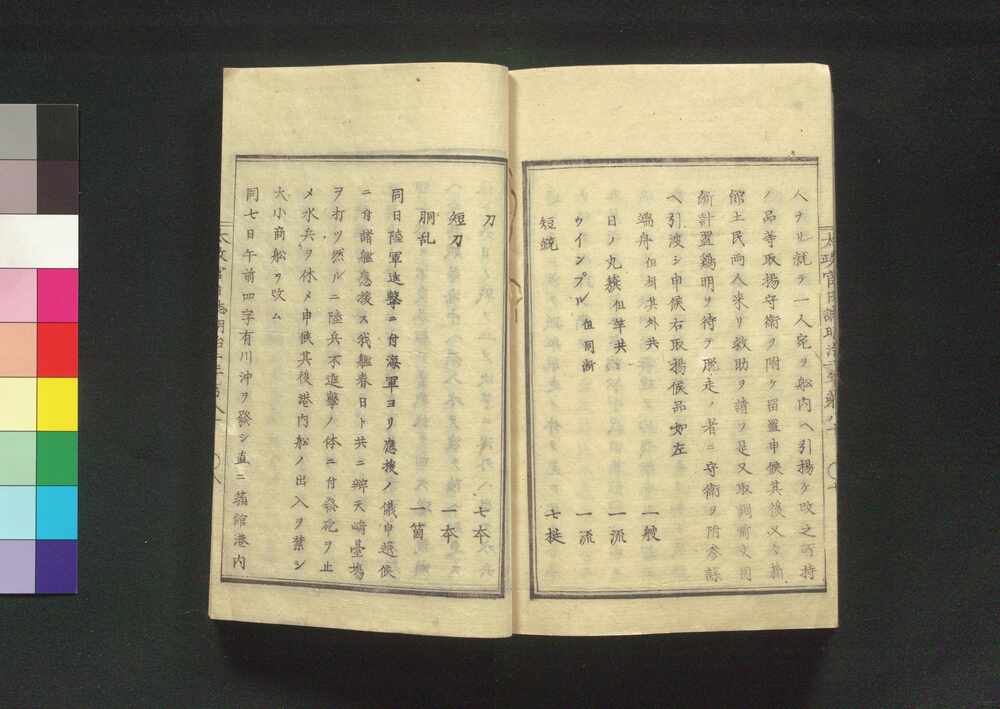 人ヲ以就テ一人宛ヲ船内ヘ引揚ケ改之所持
ノ品等取揚守衛ヲ附ケ留置申候其後又々箱
館土民両人来リ救助ヲ請ヲ是又取調前文同
断計置鶏明ヲ待ヲ脱走ノ者ニ守衛ヲ附参謀
ヘ引渡シ申候右取揚候品如左
端舟 但櫂其外共 一艘
日ノ丸籏 但竿共 一流
ウインプル 但同断 一流
短銃 七挺
刀 七本
短刀 一本
胴乱 一箇
同日陸軍進撃ニ付海軍ヨリ應援ノ儀申越候
ニ付諸艦應援ス我艦春日ト共ニ辨天崎臺場
ヲ打ツ然ルニ陸兵不進撃ノ休ニ付發砲ヲ止
メ水兵ヲ休メ申候其後港内船ノ出入ヲ禁シ
大小商船ヲ改ム
同七日午前四字有川沖ヲ發シ直ニ箱館港内